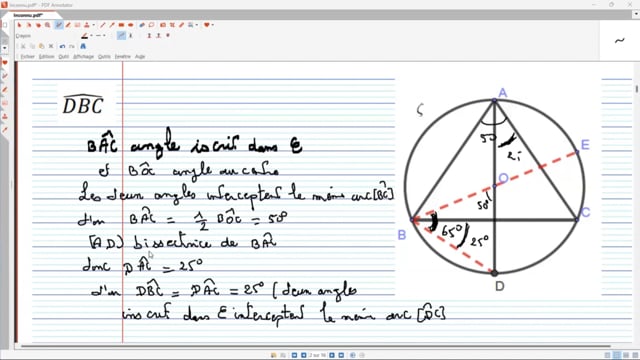 Inconnu.pdf* - PDF Annotator
Inconnu.pdf* ×
Crayon
Fichier Edition Outil Affichage Outils
DBC
BAC angle iscrit dans C
et BOC angle au centre
Les deux angles interceptent le même arc [BC]
d'où BAC = 1/2 BOC = 50°
[AD) bissectrice de BAC
donc DAC = 25°
d'où DBC = DAC = 25° (deux angles
inscrit dans C interceptent le même arc [DC]
A
50
25
E
O
50°
B
C
65°
25°
D
2 sur 16